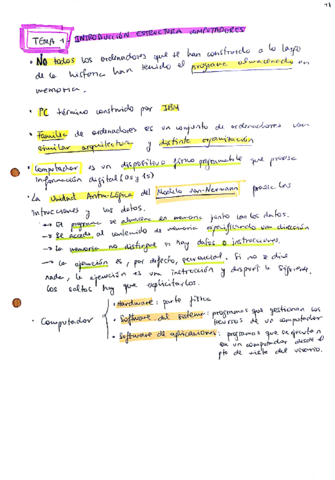 TEMA 1: INTRODUCCIÓN ESTRUCTURA COMPUTADORES
• No todos los ordenadores que se han construido a lo largo
de la historia han tenido el programa almacenado en
memoria.
• PC término construido por IBM
• Familia de ordenadores es un conjunto de ordenadores con
similar arquitectura y distinta organización
• Computador es un dispositivo físico programable que procesa
información digital (0s y 1s)
• La Unidad Aritm-Lógica del Modelo Von-Neumann procesa las
instrucciones y los datos.
→ El programa se almacena en memoria junto con los datos.
→ Se accede al contenido de memoria especificando una dirección
→ La memoria no distingue si hay datos o instrucciones.
→ La ejecución es, por defecto, secuencial. Si no se dice
nada, la ejecución es una instrucción y después la siguiente.
Los saltos hay que explicitarlos.
• Computador
• Hardware: parte física
• Software del sistema: programas que gestionan los
recursos de un computador
• Software de aplicaciones: programas que se ejecutan
en un computador desde el
pto de vista del usuario.